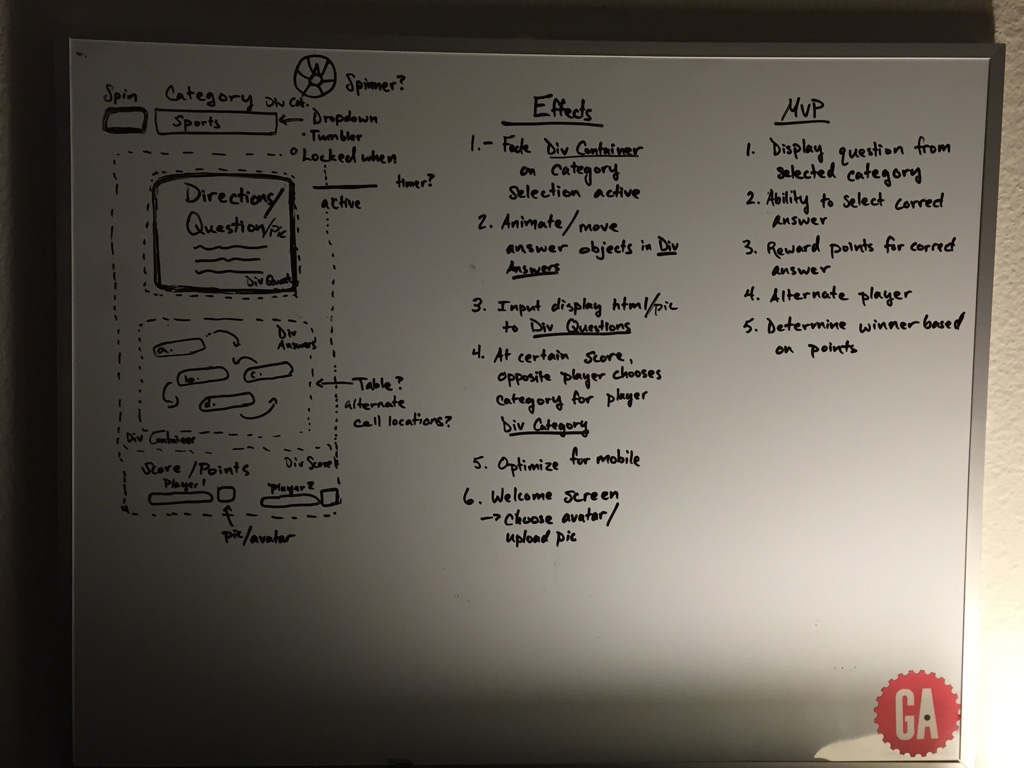 Spin
Category
Div Cat.
Spinner?
Sports
Dropdown
• Tumbler
Locked when
active
timer?
Directions/
Question/pic
Div Quest
Div
Answers
a.
b.
c.
d.
Table?
alternate
call locations?
Div Container
Score/Points
Div Score
Player 1
Player 2
pic/avatar
Effects
1.- Fade Div Container
on category
selection active
2. Animate/move
answer objects in Div
Answers
3. Input display html/pic
to Div Questions
4. At certain score,
opposite player chooses
category for player
Div Category
5. Optimize for mobile
6. Welcome screen
→ Choose avatar/
upload pic
MVP
1. Display question from
selected category
2. Ability to select correct
answer
3. Reward points for correct
answer
4. Alternate player
5. Determine winner based
on points
GA